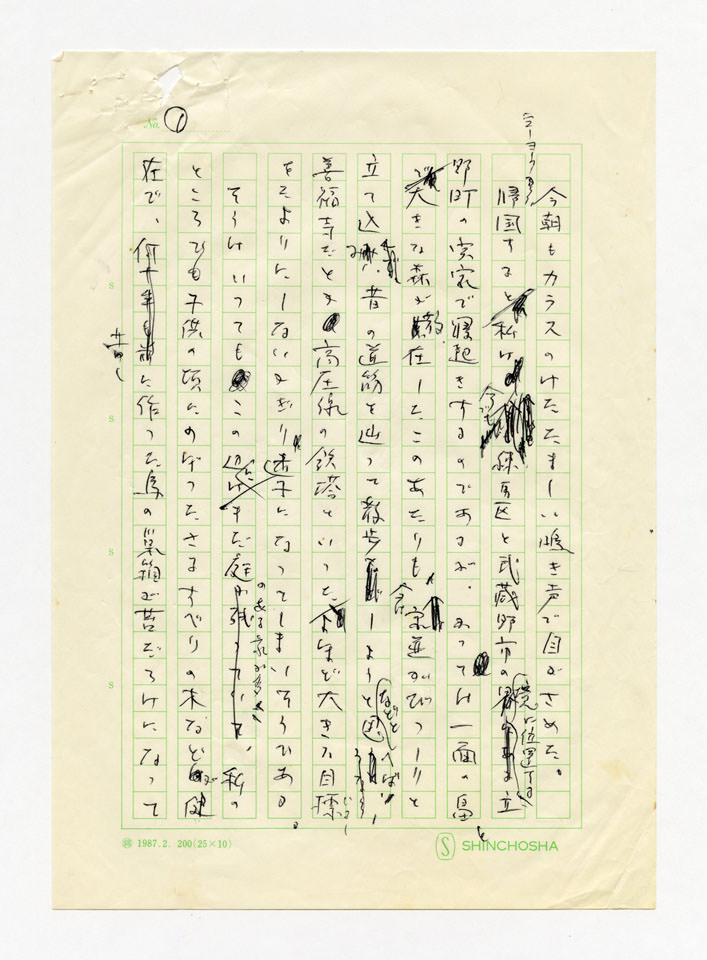 No. 1
今朝もカラスのけたたましい鳴き声で目がさめた。
ニューヨークから帰国すると私は今も練馬区と武蔵野市の境に位置する立
野町の実家で寝起きするのである。かつては一面の畠と
大きな森が散在したこのあたりも今は家並がびっしりと
立て込み、昔の道筋を辿って散歩しようと
善福寺だとか高圧線の鉄塔といった大きな目標
をたよりにしないかぎり迷子になってしまいそうである。
そうはいってもこの辺にはまだ庭のある家が多く、私の
ところでも子供の頃にのぼったさるすべりの木などが健
在で、昔に作った鳥の巣箱が苔だらけになって
1987.2. 200(25×10)
S SHINCHOSHA